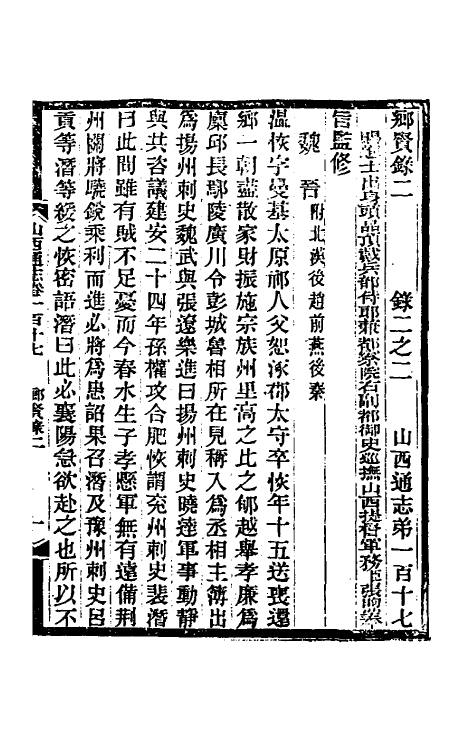 鄉賢錄二　錄二之二　山西通志弟一百十七
賜進士出身頭品頂戴兵部侍郎兼都察院右副都御史巡撫山西提督軍務臣張煦奉
旨監修
魏　晉附北漢後趙前燕後秦
溫恢字曼基太原祁人父恕涿郡太守卒恢年十五送喪還
鄉一朝盡散家財振施宗族州里高之比之郇越舉孝廉爲
廩邱長鄢陵廣川令彭城魯相所在見稱入爲丞相主簿出
爲揚州刺史魏武與張遼樂進曰揚州刺史曉達軍事動靜
與共咨議建安二十四年孫權攻合肥恢謂兖州刺史裴潛
曰此閒雖有賊不足憂而今春水生子孝懸軍無有遠備荆
州關將驍銳乘利而進必將爲患詔果召潛及豫州刺史呂
貢等潛等緩之恢密語潛曰此必襄陽急欲赴之也所以不
山西通志卷一百十七　鄉賢錄二　一